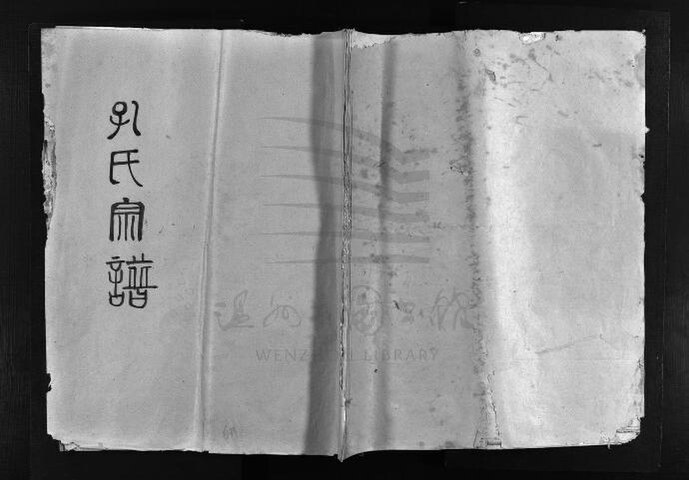 孔氏宗譜
温州图书馆
WENZHOU LIBRARY